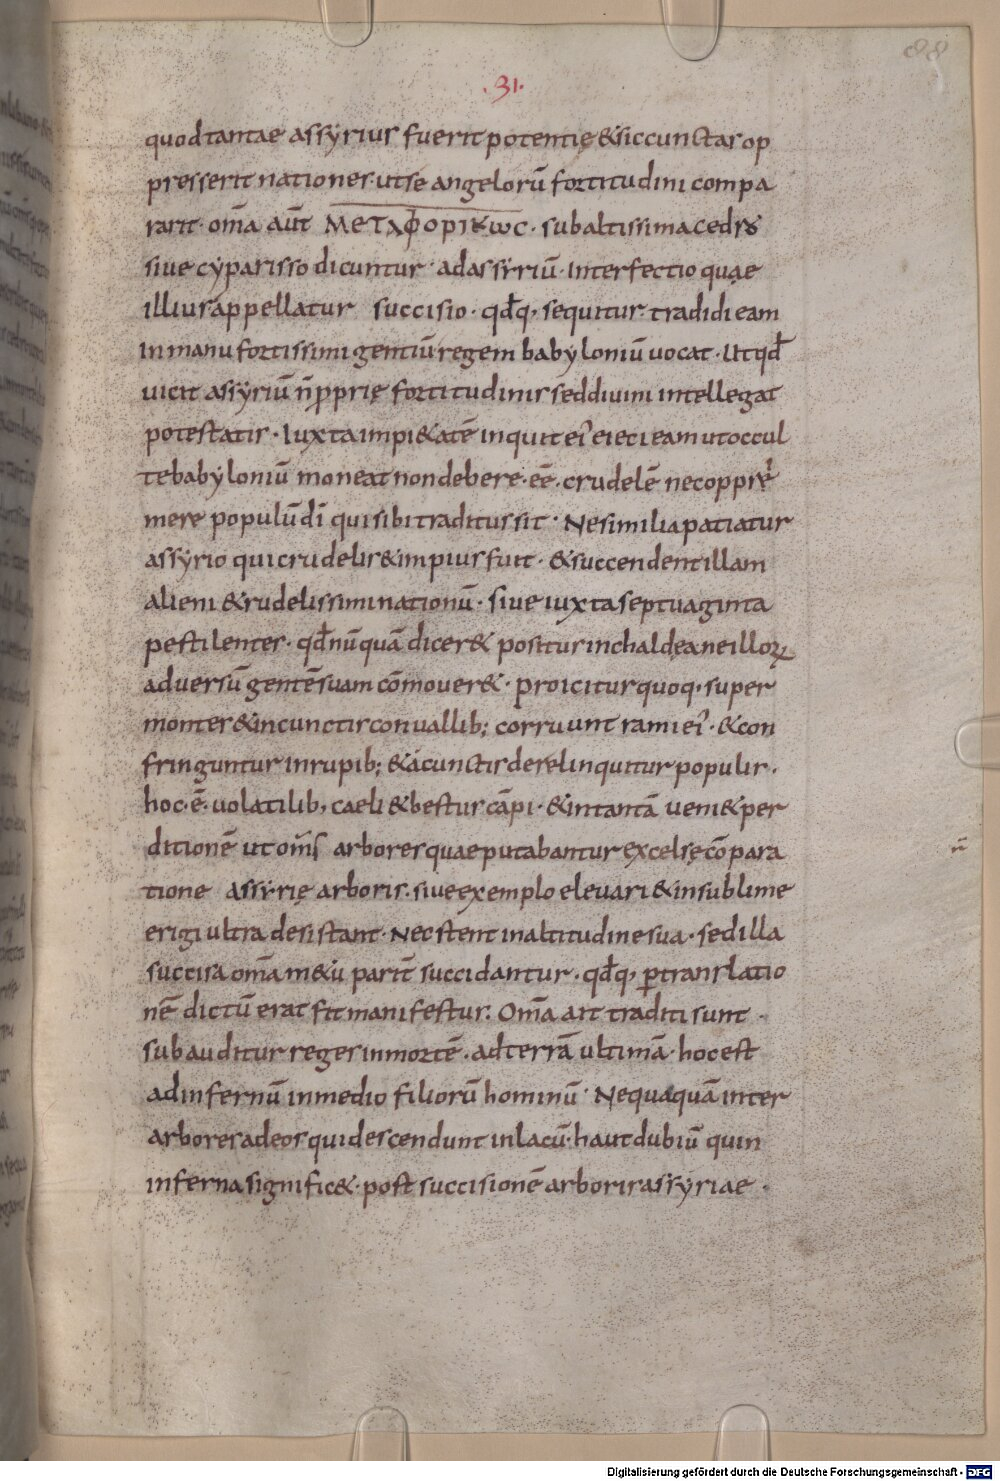 88
.31.
quod tantae assyrius fuerit potentię & sic cunctas op
presserit nationes. ut se angelorū fortitudini compa
rarit. om̄a aūt ΜΕΤΑΦΟΡΙΚωC. sub altissima cedro
siue cyparisso dicuntur. ad assyriū. Interfectio quae
illius appellatur succisio. qđq, sequitur. tradidi eam
In manu fortissimi gentiū regem babyloniū uocat. Ut qđ
uicit assyriū n̄ ꝓprię fortitudinis sed diuini intellegat
potestatis. Iuxta impi&atē inquit ei' eieci eam ut occul
te babyloniū moneat non debere. eē. crudelē nec oppri
mere populū dī qui sibi traditus sit. Ne similia patiatur
assyrio qui crudelis & impius fuit. & succendent illam
alieni & crudelissimi nationū. siue iuxta septuaginta
pestilentes. qđ nūquā dicer& positur in chaldea ne illoꝝ
aduersū gentē suam cōmouer&. proicitur quoq, super
montes & in cunctis conuallib; corruunt rami ei'. & con
fringuntur in rupib; & a cunctis derelinquitur populis.
hoc ē. uolatilib, caeli & bestiis cāpi. & in tantā ueni& per
ditionē ut om̄s arbores quae putabantur excelsę cōpara
tione assyrię arboris. siue exemplo eleuari & in sublime
erigi ultra desistant. Nec stent in altitudine sua. sed illa
succisa om̄a m&u parit̄ succidantur. qđq, ꝑ translatio
nē dictū erat fit manifestus. Om̄a ait traditi sunt.
subauditur reges in mortē. ad terrā ultimā. hoc est
ad infernū in medio filiorū hominū. Nequaquā inter
arbores ad eos qui descendunt in lacū. haut dubiū quin
inferna signific&. post succisionē arboris assyriae.
Digitalisierung gefördert durch die Deutsche Forschungsgemeinschaft - DFG